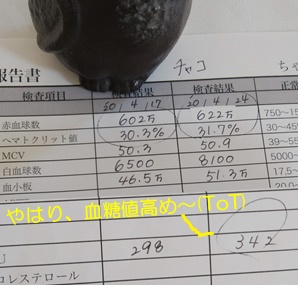 報告書
チャコ
ちゃ
検査項目 検査結果 検査結果 正常
201 4/17 201 4/24
赤血球数 602万 622万 750-15
ヘマトクリット値 30.3% 31.7% 30-45
MCV 50.3 50.9 39-55
白血球数 6500 8100 5000-
血小板 46.5万 51.3万 17.5-
やはり、血糖値高め～(ToT)
298 342
コレステロール